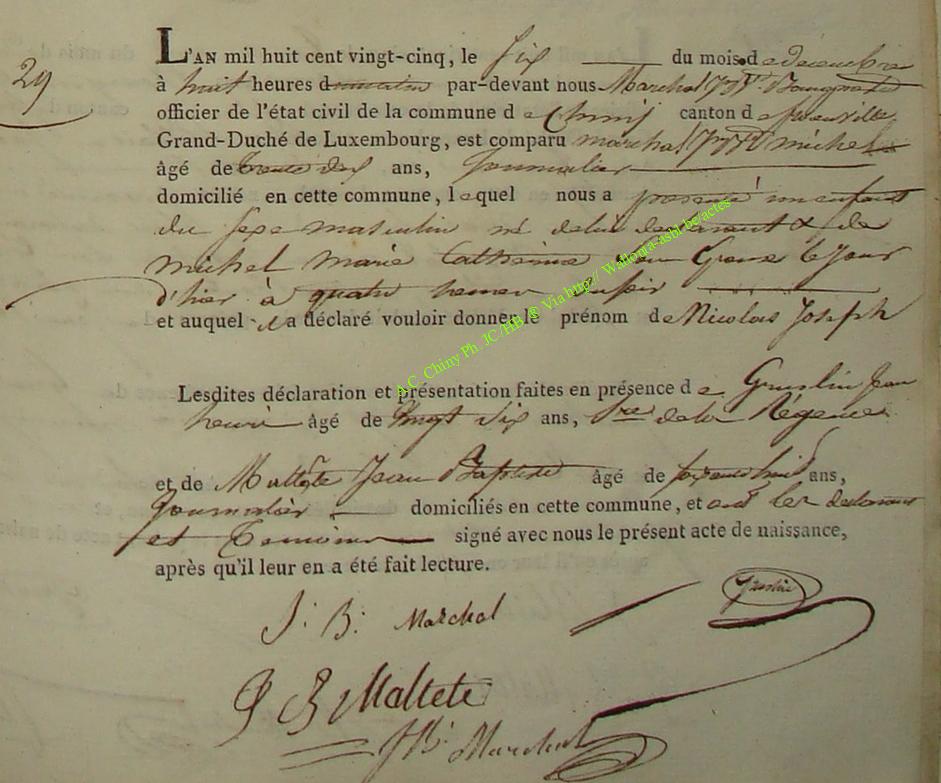 29
L'AN mil huit cent vingt-cinq, le six du mois de décembre
à huit heures du matin par-devant nous Marchal J. Bte Bourgmestre
officier de l'état civil de la commune de Chiny canton de
Grand-Duché de Luxembourg, est comparu marchal michel
âgé de trente dix ans, Journalier
domicilié en cette commune, lequel nous a présenté un enfant
du sexe masculin né de lui declarant & de
michel marie Catherine le Jour
d'hier à quatre heures du soir
et auquel il a déclaré vouloir donner le prénom de Nicolas Joseph
Lesdites déclaration et présentation faites en présence de Jean
henri âgé de vingt six ans, de la Régence
et de Maltete Jean Baptiste âgé de soixante huit ans,
Journalier domiciliés en cette commune, et ont les declarant
et Temoins signé avec nous le présent acte de naissance,
après qu'il leur en a été fait lecture.
J. B. Marchal
J B Maltete
J B. Marchal
A.C. Chiny Ph. JC/HB @ Via http:// Wallonia-asbl.be/actes